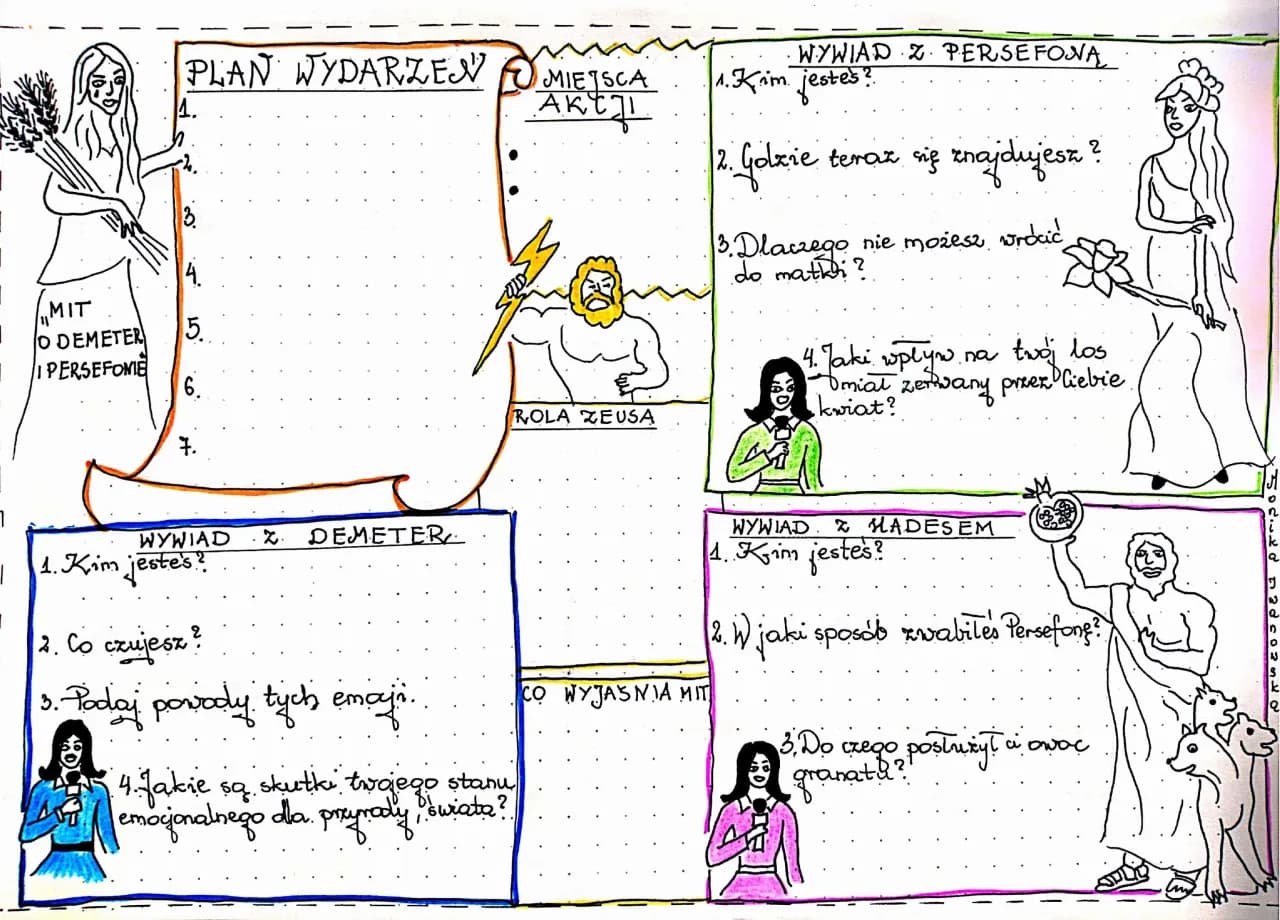 PLAN WYDARZEŃ
1.
2.
3.
4.
5.
6.
7.
„MIT
O DEMETER
I PERSEFONIE"
MIEJSCA
AKCJI
•
•
ROLA ZEUSA
CO WYJAŚNIA MIT
WYWIAD Z PERSEFONĄ
1. Kim jesteś?
2. Gdzie teraz się znajdujesz?
3. Dlaczego nie możesz wrócić
do matki?
4. Jaki wpływ na twój los
miał zerwany przez Ciebie
kwiat?
WYWIAD Z DEMETER
1. Kim jesteś?
2. Co czujesz?
3. Podaj powody tych emocji.
4. Jakie są skutki twojego stanu
emocjonalnego dla przyrody, świata?
WYWIAD Z HADESEM
1. Kim jesteś?
2. W jaki sposób zwabiłeś Persefonę?
3. Do czego posłużył Ci owoc
granatu?
Monika Iwanowska